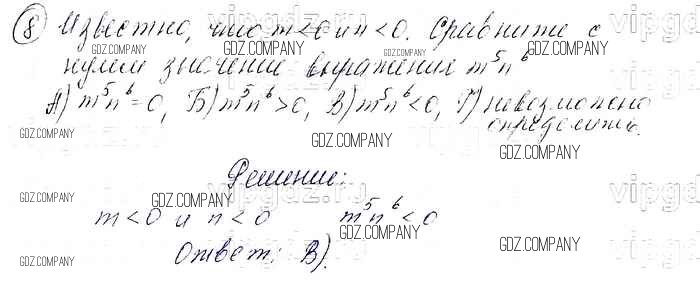 8) Известно, что m<0 и n<0. Сравните с
нулём значение выражения m⁵n⁶
А) m⁵n⁶=0, Б) m⁵n⁶>0, В) m⁵n⁶<0, Г) невозможно
определить.
Решение:
m<0 и n<0 m⁵n⁶<0
Ответ: В).
GDZ.COMPANY
GDZ.COMPANY
GDZ.COMPANY
GDZ.COMPANY
GDZ.COMPANY
GDZ.COMPANY
GDZ.COMPANY
GDZ.COMPANY
GDZ.COMPANY
GDZ.COMPANY
GDZ.COMPANY
GDZ.COMPANY